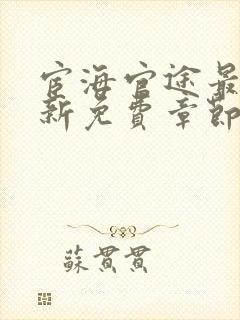 宦海官途最
新免費章節
蘇貫貫